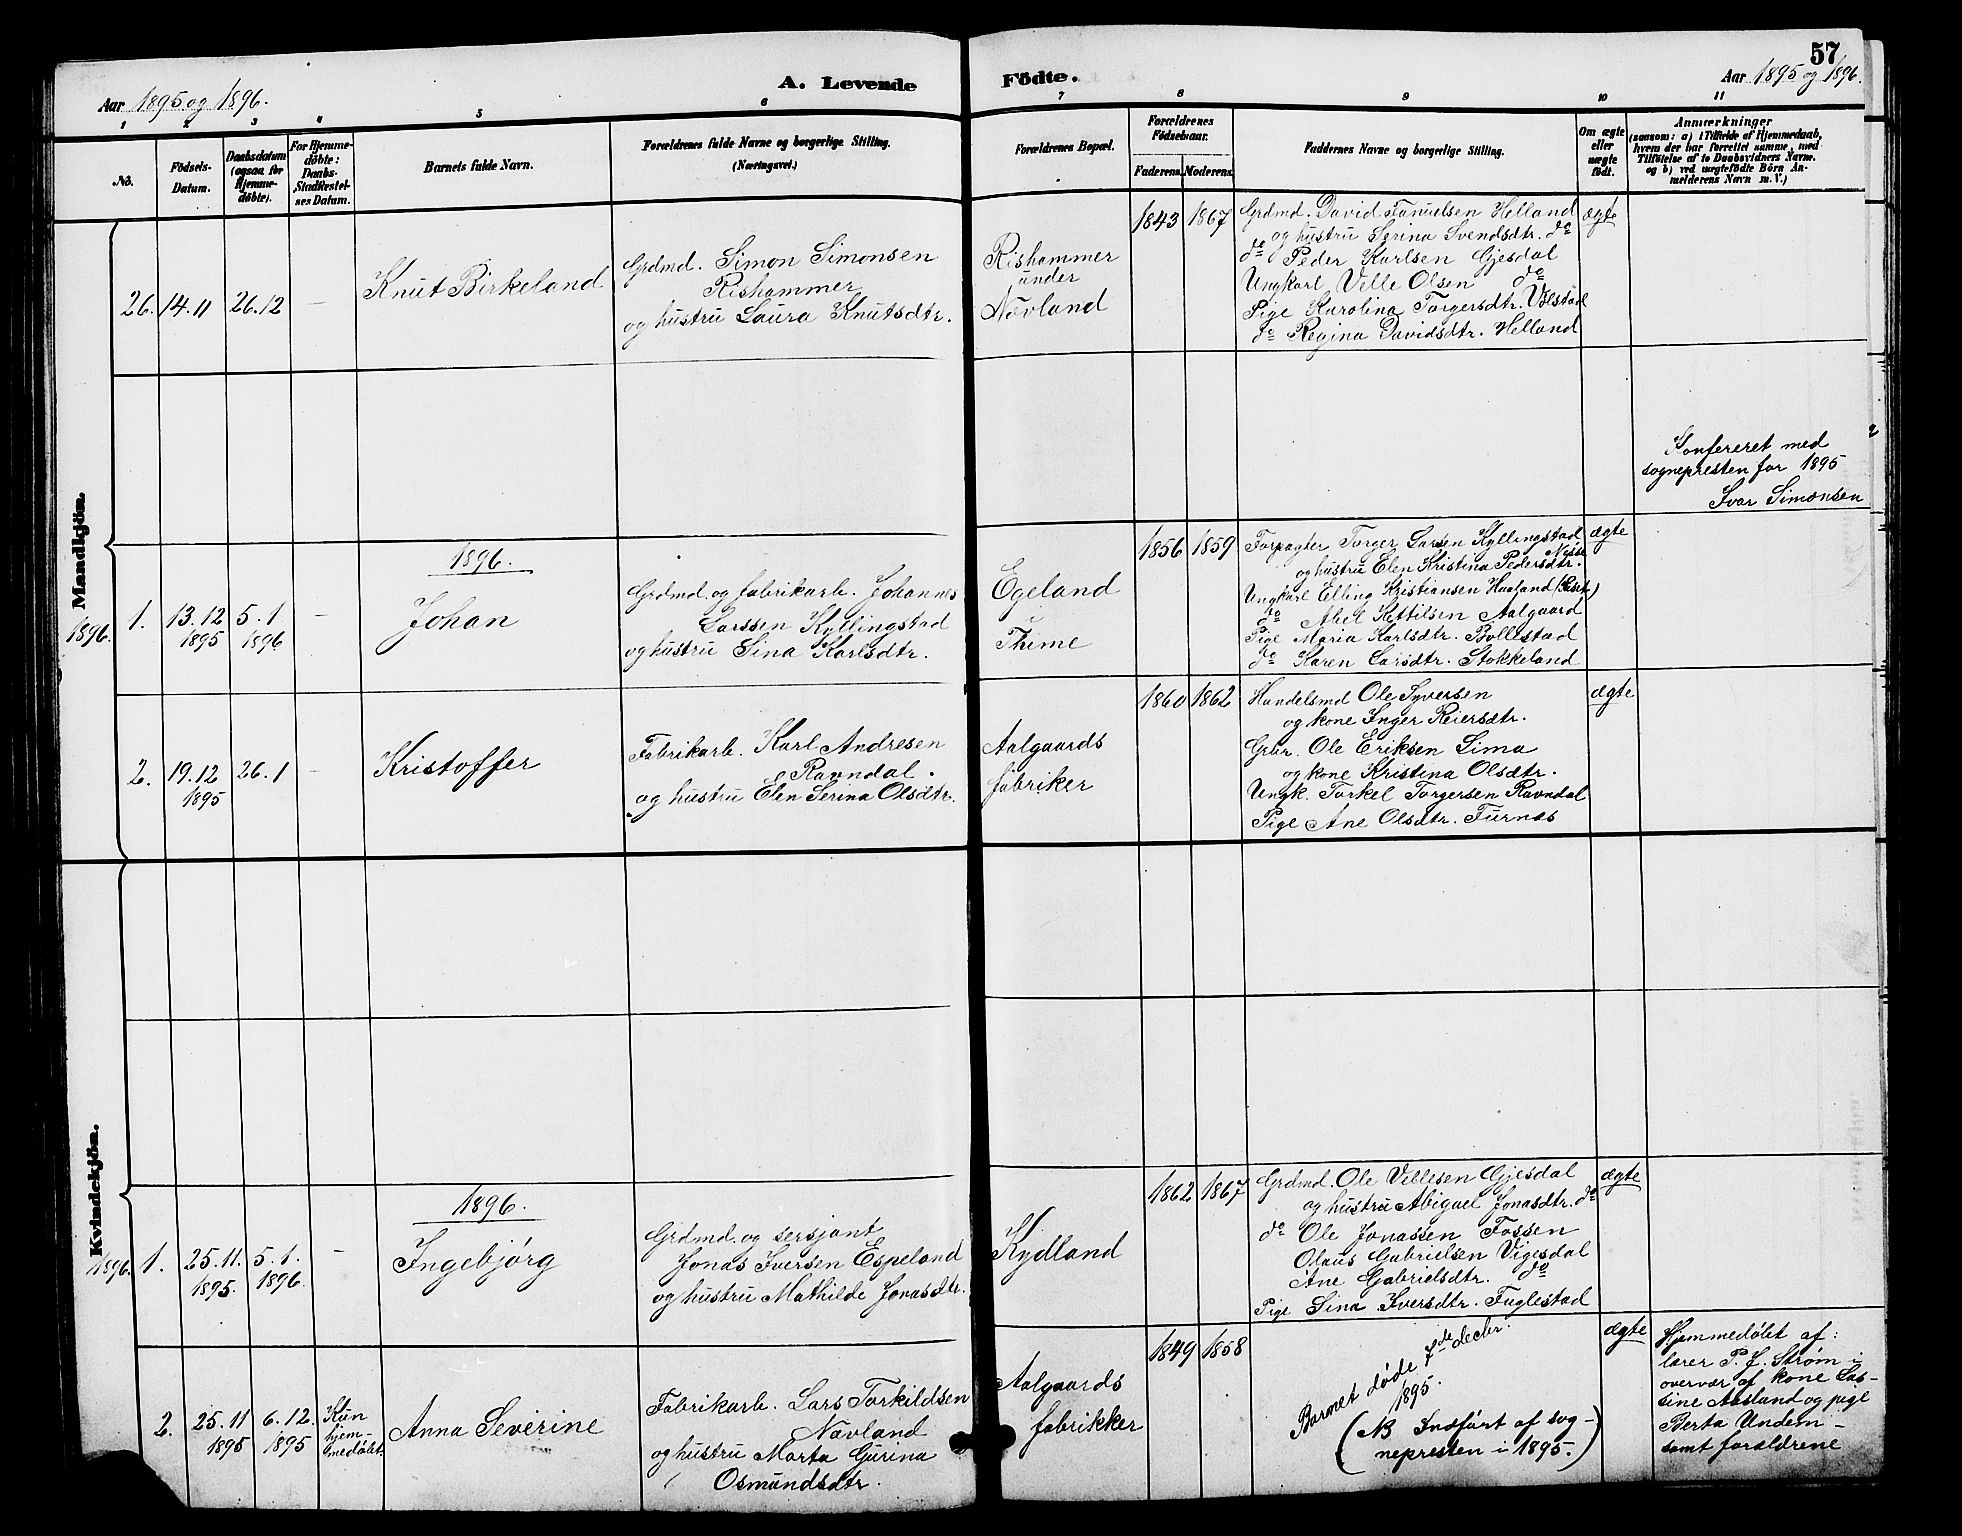 57
A. Levende Födte.
Aar 1895 og 1896.
Aar 1895 og 1896.
1 2 3 4 5 6 7 8 9 10 11
No.
Födsels-
Datum.
Daabsdatum
(ogsaa for
Hjemme-
döbte).
For Hjemme-
döbte:
Daabs-
Stadfæstel-
ses Datum.
Barnets fulde Navn.
Forældrenes fulde Navne og borgerlige Stilling.
(Næringsvei.)
Forældrenes Bopæl.
Forældrenes
Födselsaar.
Faderens. Moderens.
Faddernes Navne og borgerlige Stilling.
Om ægte
eller
uægte
födt.
Anmærkninger
(saasom: a) i Tilfælde af Hjemmedaab,
hvem der har forrettet samme, med
Tilföielse af to Daabsvidners Navne.
og b) ved uægtefödte Börn An-
melderens Navn m. V.)
Mandkjön.
26. 14.11 26.12 –
Knut Birkeland
Grdmd. Simon Simonsen
Rishammer
og hustru Laura Knutsdtr.
Rishammer
under
Nævland
1843 1867
Grdmd. David Tanuelsen Helland
og hustru Serina Svendsdtr. do
do Peder Karlsen Gjesdal
Ungkarl Velle Olsen do
Pige Karolina Torgersdtr. Vølstad
do Regina Davidsdtr. Helland
ægte
Konfereret med
sognepresten for 1895
Ivar Simonsen
1896.
1896.
1. 13.12 5.1 –
1895 1896
Johan
Grdmd. og fabrikarb. Johannes
Larssen Kyllingstad
og hustru Sina Karlsdtr.
Egeland
i
Thime
1856 1859
Forpagter Torger Larsen Kyllingstad
Nesse
og hustru Elen Kristina Pedersdtr.
Ungkarl Elling Kristiansen Haaland
do Abel Kettilsen Aalgaard
Pige Maria Karlsdtr. Bollestad
do Karen Larsdtr. Stokkeland
ægte
2. 19.12 26.1 –
1895
Kristoffer
Fabrikarb. Karl Andresen
Ravndal.
og hustru Elen Serina Olsdtr.
Aalgaards
fabriker
1860 1862
Handelsmd Ole Syversen
og kone Inger Reiersdtr.
Grbr. Ole Eriksen Lima
og kone Kristina Olsdtr.
Ungk. Torkel Torgersen Ravndal
Pige Ane Olsdtr. Furnes
ægte
Kvindekjön.
1896.
1896.
1. 25.11. 5.1. –
1895. 1896.
Ingebjørg
Grdmd. og sersjant
Jonas Iversen Espeland
og hustru Mathilde Jonasdtr.
Kydland
1862 1867
Grdmd. Ole Vellesen Gjesdal
og hustru Abigael Jonasdtr. do
do Ole Jonassen Fossen
Olaus Gabrielsen Vigesdal
Ane Gabrielsdtr. do
Pige Sina Iversdtr. Fuglestad
ægte
2. 25.11 6.12.
1895 1895
Kun
hjem-
medøbt.
Anna Severine
Fabrikarb. Lars Torkildsen
Nævland
og hustru Marta Gurina
Osmundsdtr.
Aalgaards
fabrikker
1849 1858
Barnet døde 7de decbr.
1895.
(NB Indført af sog-
nepresten i 1895.)
ægte
Hjemmedøbt af:
lærer P. J. Strøm i
overvær af kone Las-
sine Aasland og pige
Berta Undem –
samt forældrene